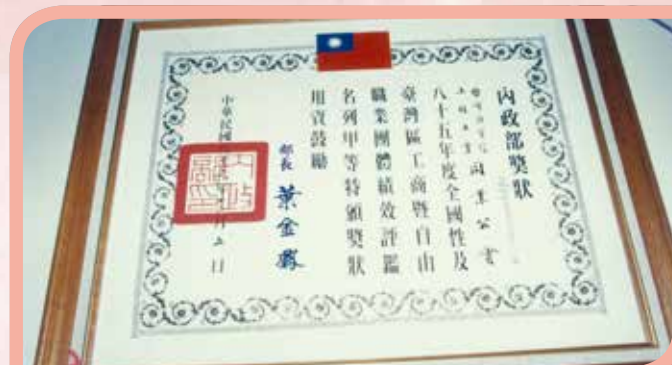 內政部獎狀
同業公會
八十五年度全國性及
臺灣區工商暨自由
職業團體績效評鑑
名列甲等特頒獎狀
用資鼓勵
部長 葉金鳳
中華民國
月 五 日